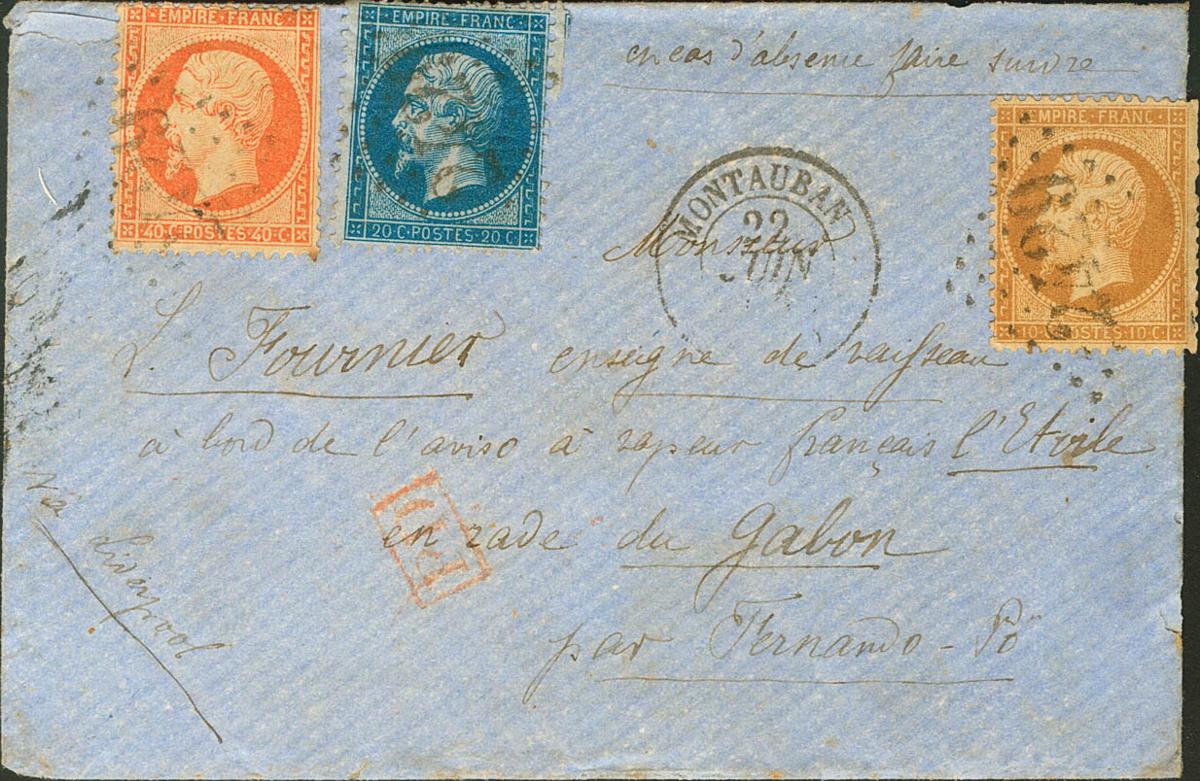 EMPIRE·FRANC
40·C·POSTES·40·C
EMPIRE·FRANC
20·C·POSTES·20·C
en cas d'absence faire suivre
EMPIRE·FRANC
10·C·POSTES·10·C
MONTAUBAN
22
JUIN
Monsieur
L. Fournier enseigne de vaisseau
à bord de l'aviso à vapeur français l'Etoile
en rade du Gabon
par Fernando-Pô
Via
Liverpool